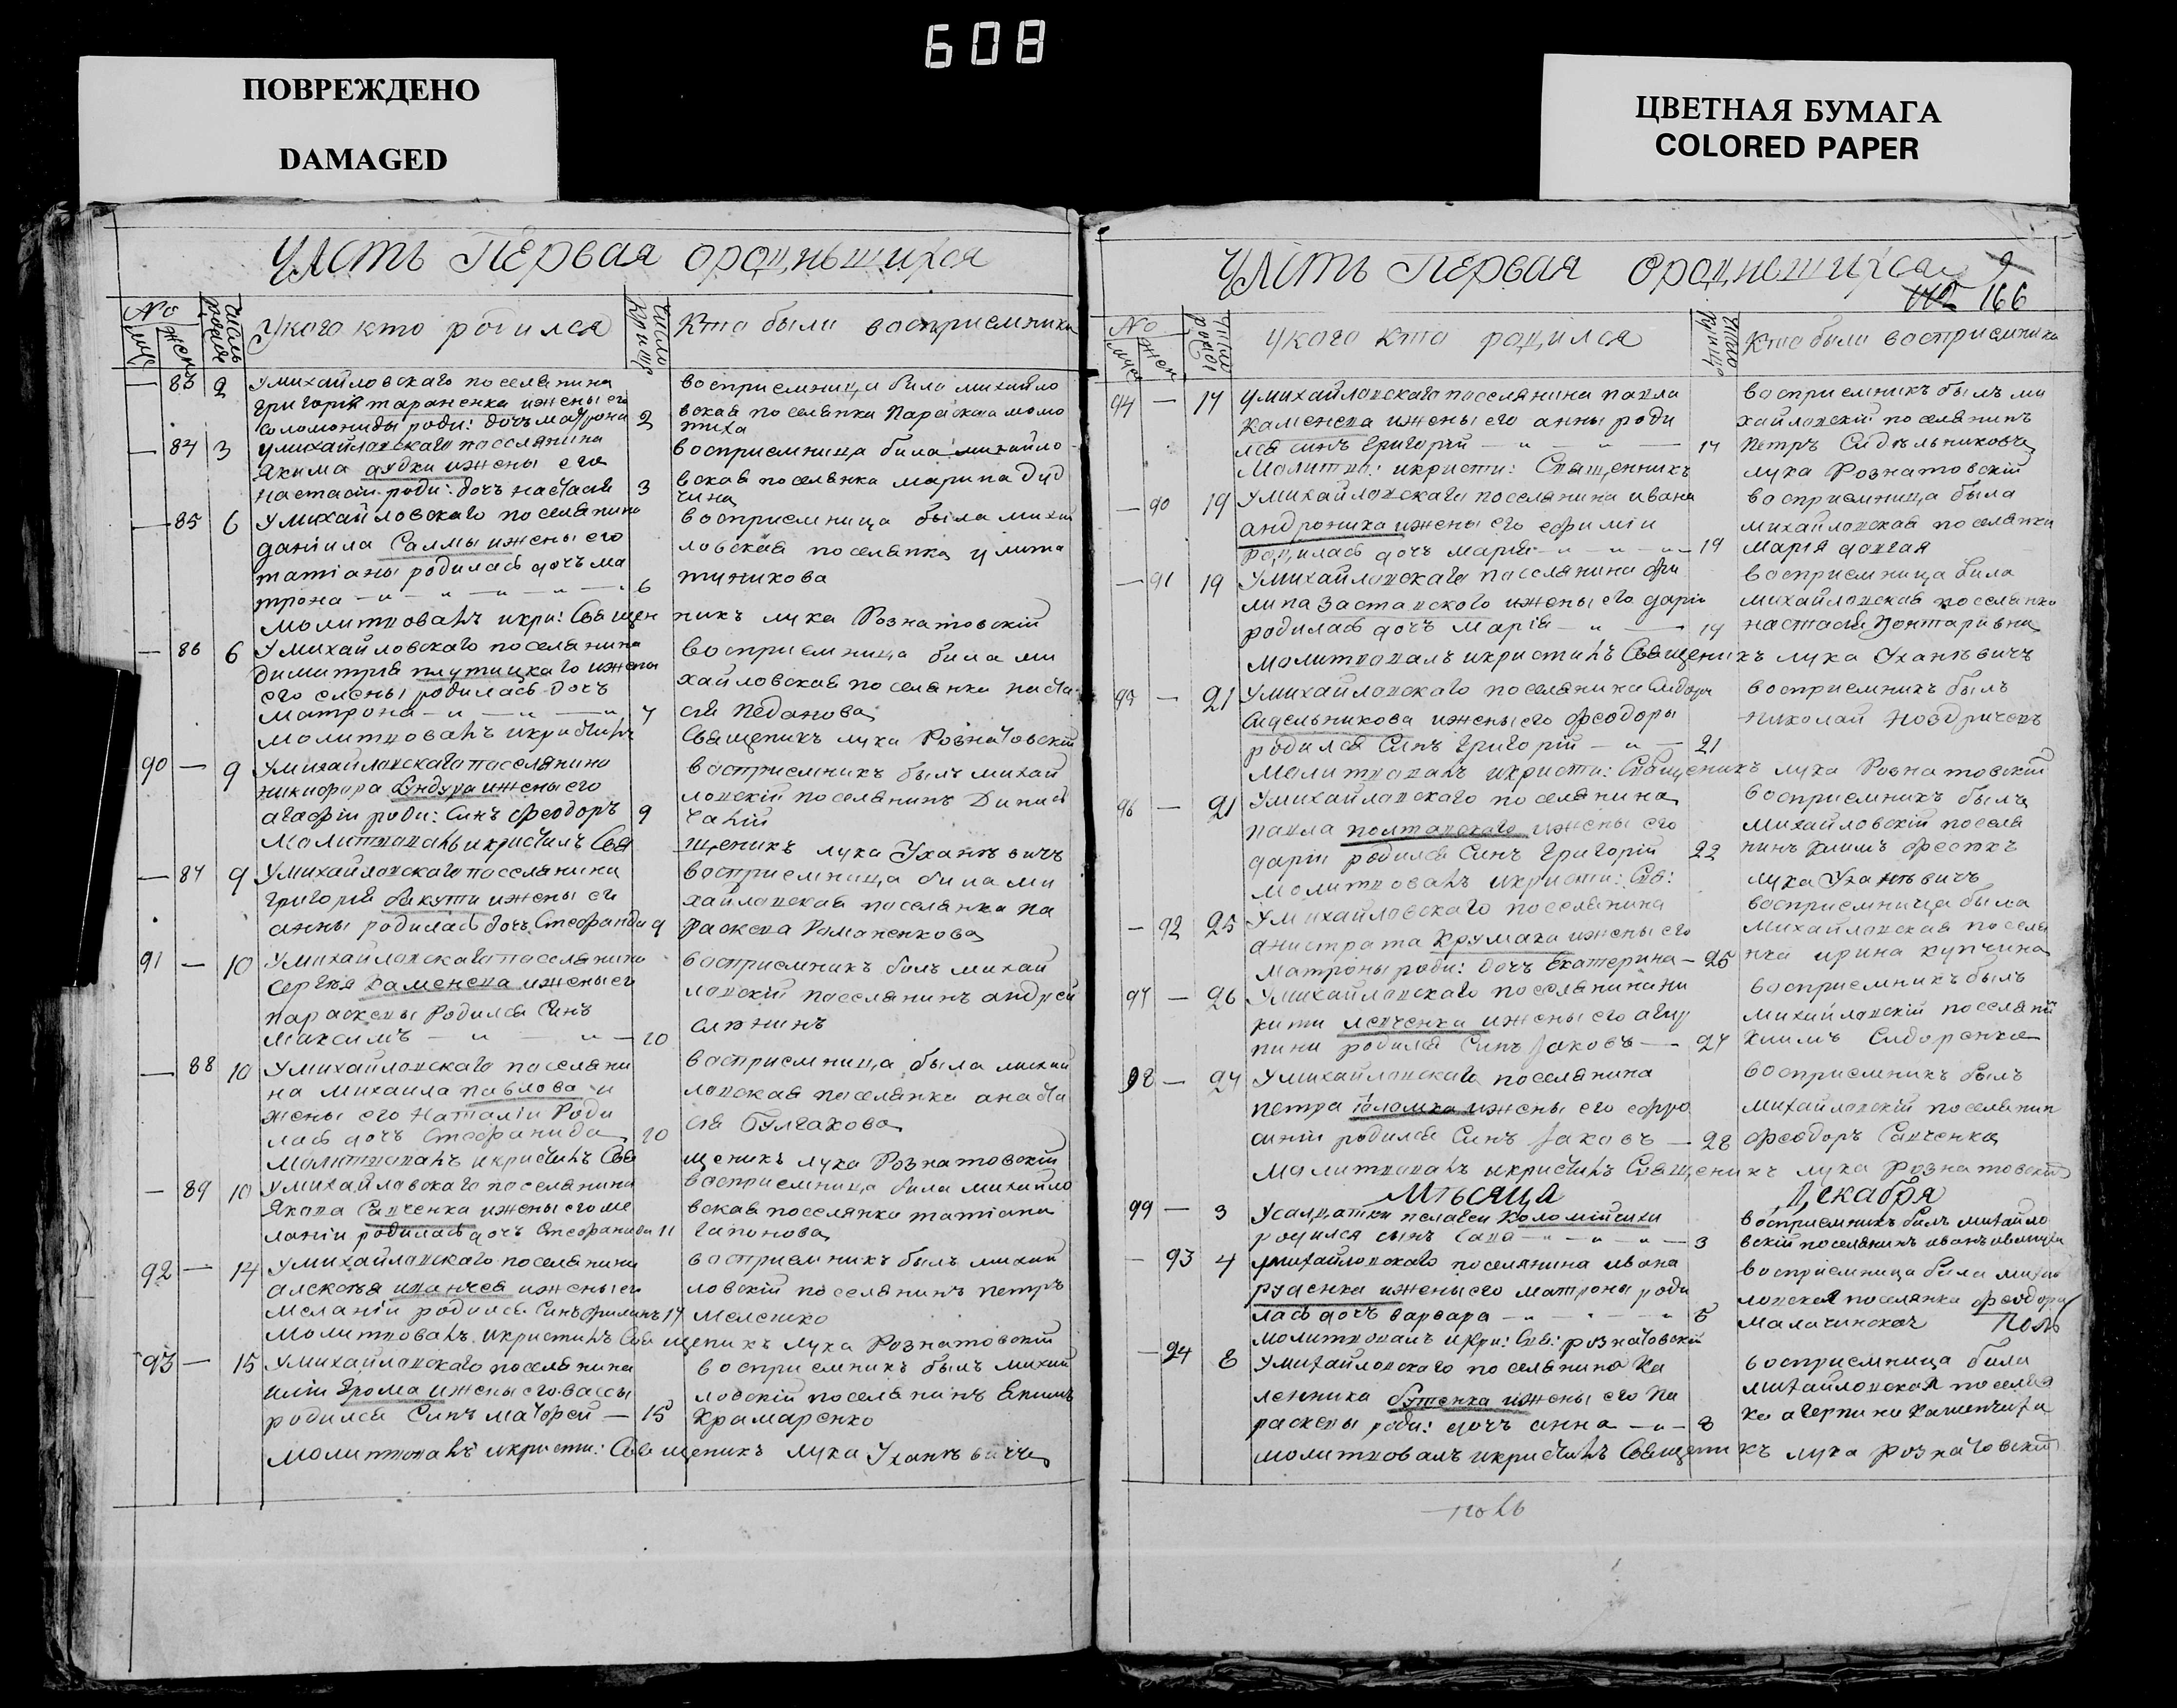 608
ПОВРЕЖДЕНО
DAMAGED
ЦВЕТНАЯ БУМАГА
COLORED PAPER
Часть Первая ородившихся
№
Укого кто родился
Кто были восприемники
83 2 Умихайловскаго поселянина
григорія тараненка ижены его
Соломониды роди: дочь матрона 2
восприемница била михайло
вская поселянка Параскева
84 3 Умихайловскаго поселянина
Якима дудки ижены его
настасіи роди: дочь настасія 3
восприемница била михайло
вская поселянка марина Дуд
чина
85 6 Умихайловскаго поселянина
даніила Салмы ижены его
татіаны родилась дочь ма
трона 6
восприемница была михай
ловская поселянка улита
молитвовалъ икри: Священ никъ лука Рознатовскій
86 6 Умихайловскаго поселянина
димитрія плутицкаго ижены
его елены родилась дочь
матрона 7
восприемница била ми
хайловская поселянка наста
сія Педанова
молитвовалъ икристилъ Священикъ лука Рознатовскій
90 9 Умихайловскаго поселянина
никифора ижены его
агафіи роди: Синъ феодоръ 9
восприемникъ былъ михай
ловскій поселянинъ Динис
Молитвовалъ икристилъ Свя щеникъ лука Уханѣвичъ
87 9 Умихайловскаго поселянина
григорія бакути ижены его
анны родилась дочь Стефанида 9
восприемница била ми
хайловская поселянка па
раскева Романенкова
91 10 Умихайловскаго поселянина
Сергѣя Каменева ижены его
параскевы Родился Синъ
Максимъ 10
восприемникъ билъ михай
ловскій поселянинъ андрей
88 10 Умихайловскаго поселяни
на михаила павлова и
жены его Наталіи Роди
лась дочь Стефанида 10
восприемница была михай
ловская поселянка анаста
сія Булгакова
Молитвовалъ икристилъ Свя щеникъ лука Рознатовскій
89 10 Умихайловскаго поселянина
Якова Савченка ижены его ме
ланіи родилась дочь Стефанида 11
восприемница била михайло
вская поселянка татіана
Гапонова
92 14 Умихайловскаго поселянина
алексѣя иванчея ижены его
меланіи родился Синъ филипъ 14
восприемникъ былъ михай
ловскій поселянинъ петръ
Мелешко
молитвовалъ икристилъ Свя щеникъ лука Рознатовскій
93 15 Умихайловскаго поселянина
иліи Ярома ижены его вассы
родился Синъ матфей 15
восприемникъ былъ михай
ловскій поселянинъ Ефимъ
Крамаренко
молитвовалъ икристи: Свя щеникъ лука Уханѣвичъ
Часть Первая ородившихся
166
№
Укого кто родился
Кто были восприемники
94 17 Умихайловскаго поселянина павла
Каменева ижены его анны роди
лся синъ Григорій 17
восприемникъ былъ ми
хайловскій поселянинъ
Петръ Сидѣльниковъ
Молитво: икристи: Священникъ лука Рознатовскій
90 19 Умихайловскаго поселянина ивана
андроника ижены его ефиміи
родилась дочь марія 19
восприемница была
михайловская поселянка
марія долгая
91 19 Умихайловскаго поселянина фи
липа Заставского ижены его даріи
родилась дочь Марія 19
восприемница била
михайловская поселянка
настасія Понтарівна
молитвовалъ икристилъ Священикъ лука Уханѣвичъ
95 21 Умихайловскаго поселянина Сидора
Сидельникова ижены его феодоры
родился Синъ Григорій 21
восприемникъ былъ
николай ноздричевъ
молитвовалъ икристи: Священикъ лука Рознатовскій
96 21 Умихайловскаго поселянина
павла полтавскаго ижены его
даріи родился Синъ Григорій 22
восприемникъ былъ
михайловскій поселя
нинъ Климъ
молитвовалъ икристи: Свя: лука Уханѣвичъ
92 25 Умихайловскаго поселянина
анистрата Крумака ижены его
Матроны роди: дочь Екатерина 25
восприемница была
михайловская поселя
нка ирина купчина
97 26 Умихайловскаго поселянина ни
кити левченка ижены его агри
пини родился Синъ Іаковъ 27
восприемникъ былъ
михайловскій поселяни
Климъ Сидоренко
98 27 Умихайловскаго поселянина
петра ижены его ефро
синіи родился Синъ Іаковъ 28
восприемникъ былъ
михайловскій поселянин
феодоръ Савченко
молитвовалъ икристилъ Священикъ лука Рознатовскій
Мѣсяца Декабря
99 3 Усалдатки пелагеи Коломійчихи
родился сынъ Сава 3
восприемникъ билъ михайло
вскій поселянинъ иванъ
93 4 Умихайловскаго поселянина ивана
руденка ижены его матроны роди
лась дочь варвара 5
восприемница била михай
ловская поселянка феодора
малачинская
молитвовалъ икри: Свя: рознатовскій
94 8 Умихайловскаго поселянина Ка
ленника бутенка ижены его па
раскевы роди: дочь анна 8
восприемница била
михайловская поселян
ка агерпина Каменчиха
молитвовалъ икристилъ Священикъ лука рознатовскій